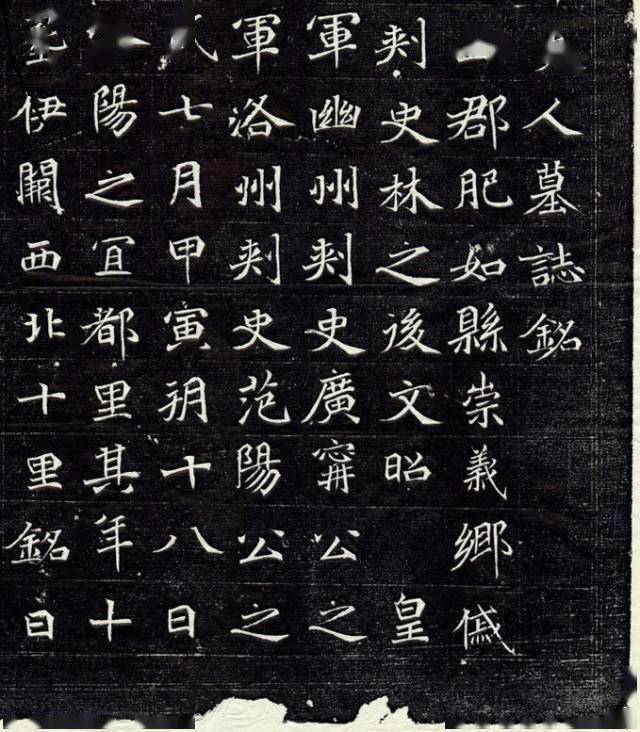 人墓誌銘
郡肥如縣崇義鄉
刺史林之後文昭 皇
軍幽州刺史廣甯公之
軍洛州刺史范陽公之
七月甲寅朔十八日
陽之宜都里其年十
伊闕西北十里銘曰